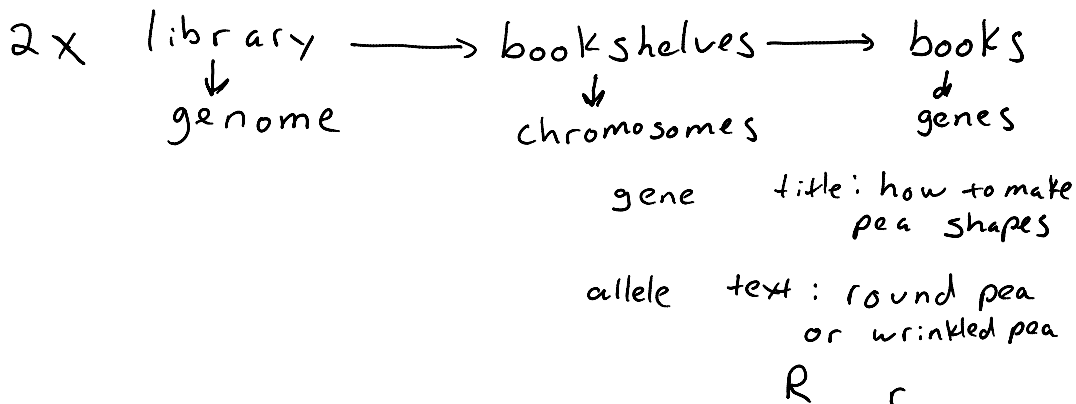 2x library → bookshelves → books
↓ ↓ ↓
genome chromosomes genes
gene title: how to make
pea shapes
allele text: round pea
or wrinkled pea
R r